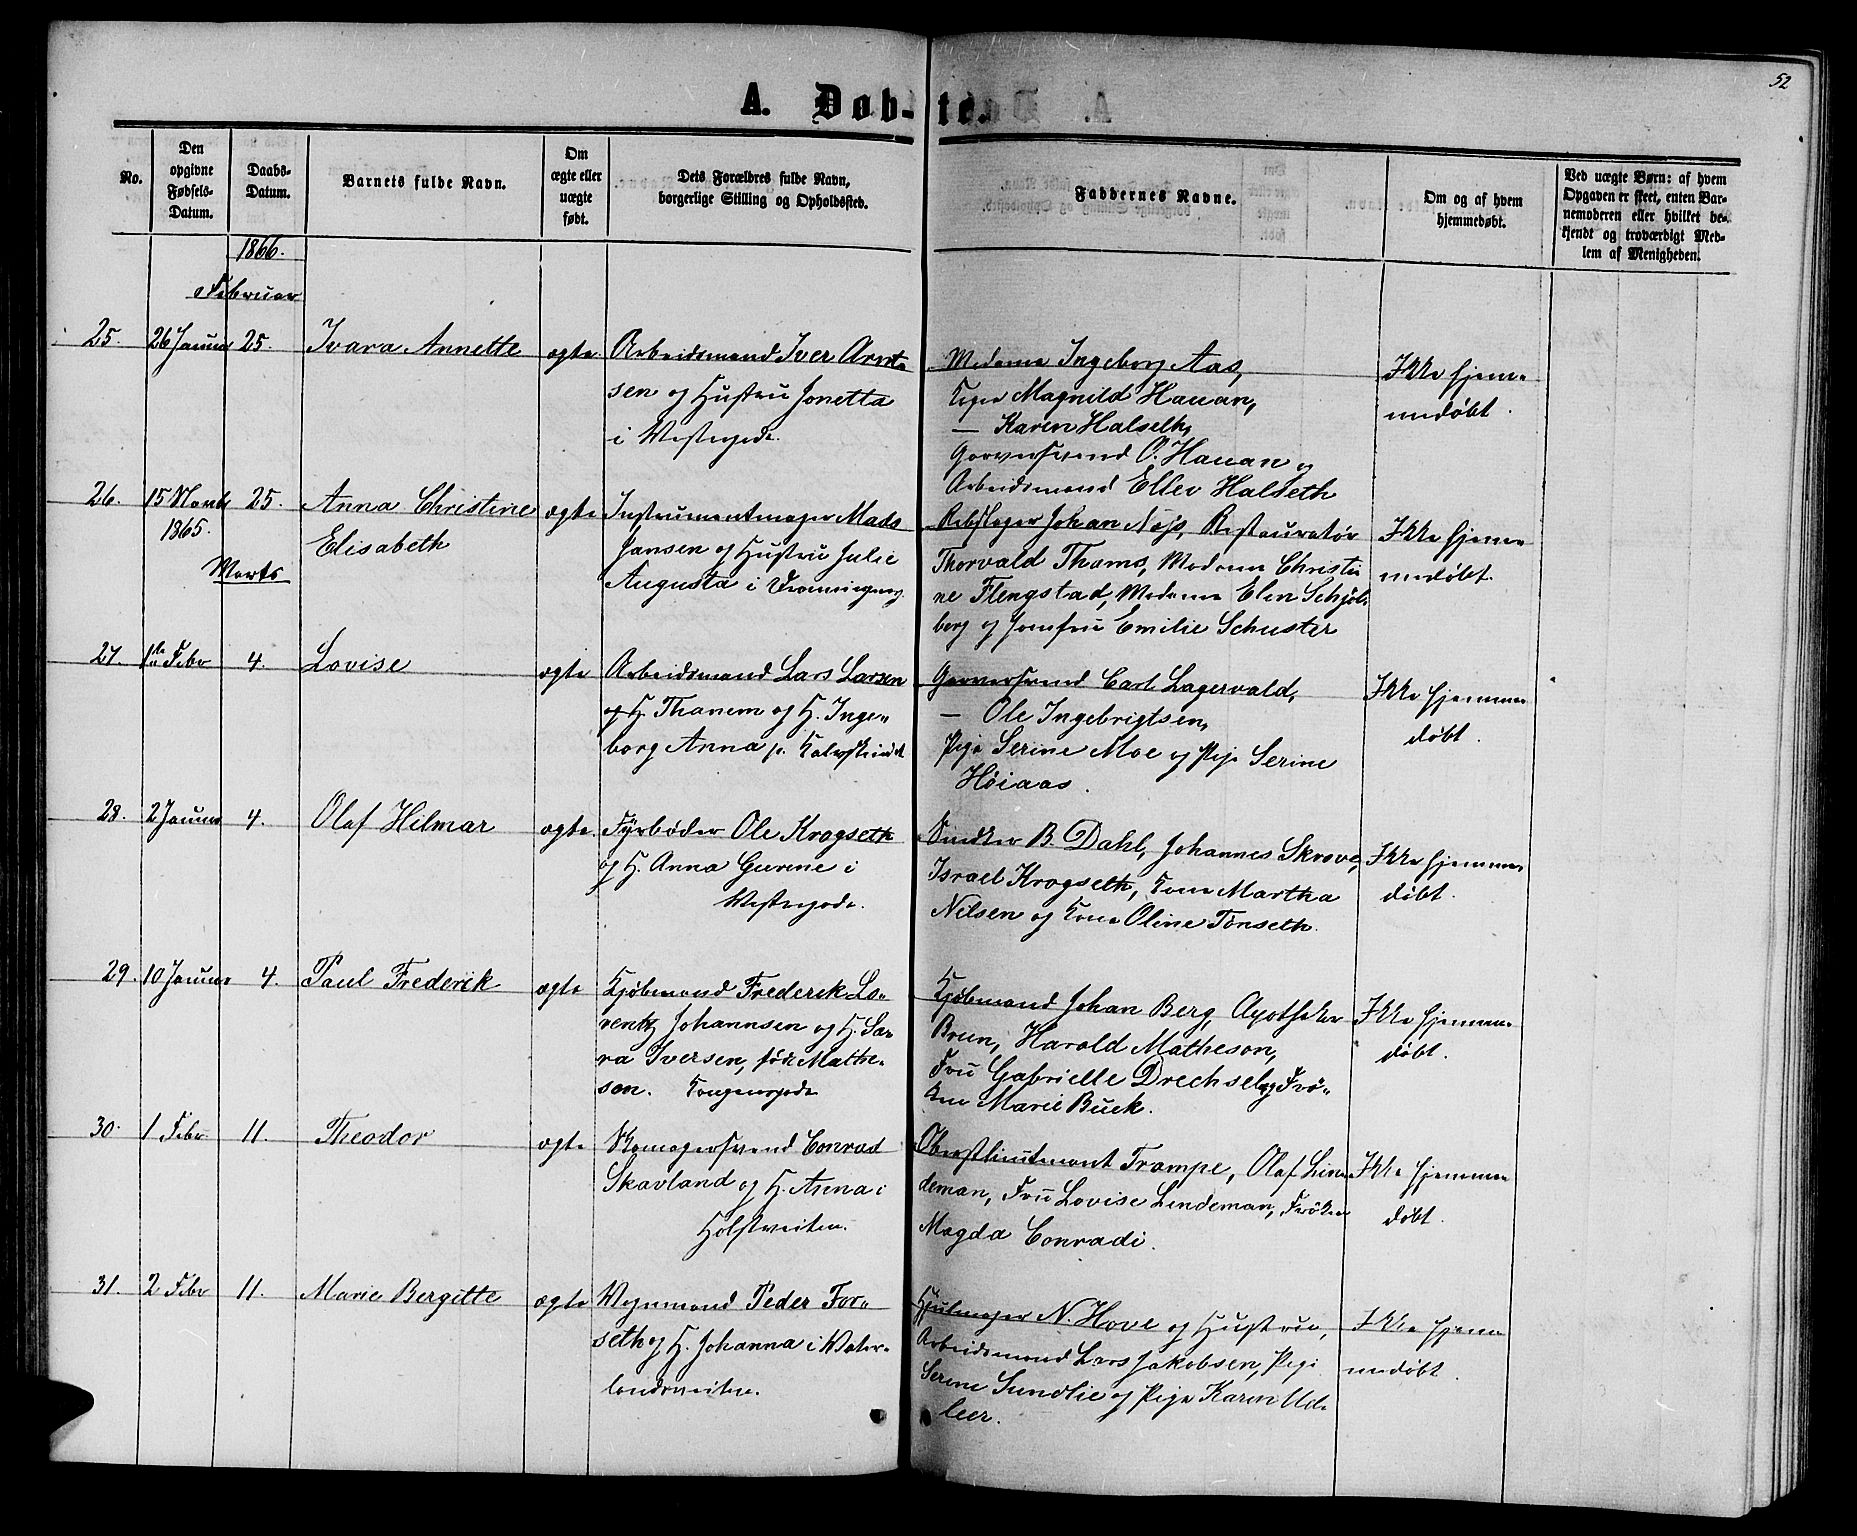 52
A. Døb-te.
No.
Den opgivne Fødsels-Datum.
Daabs-Datum.
Barnets fulde Navn.
Om ægte eller uægte født.
Dets Forældres fulde Navn, borgerlige Stilling og Opholdssted.
Faddernes Navne.
Om og af hvem hjemmedøbt.
Ved uægte Børn: af hvem Opgaven er skeet, enten Barnemoderen eller hvilket bekjendt og troværdigt Medlem af Menigheden.
1866.
Februar
25. 26 Januar 25. Ivara Annette ægte. Arbeidsmand Iver Arnt-
sen og Hustru Jonetta
i Vestergade.
Madame Ingeborg Aas,
Magnild Hauan,
— Karen Halseth,
Garversvend O. Hauan og
Arbeidsmand Ellev Halseth
Ikke hjem-
medøbt.
26. 15 Marts 25. Anna Christine ægte Instrumentmager Mads
1865. Elisabeth
Jansen og Hustru Julie
Augusta i
Rebslager Johan Restauratør
Thorvald Thams, Madame Christi
ne Flengstad, Madame Elen Schjøl-
berg og Jomfru Emilie Schuster
Ikke hjem-
medøbt.
Marts
27. 1ste Febr 4. Lovise ægte Arbeidsmand Lars Larsen
Thanem og H. Inge-
borg Anna p. Kalvskindet
Garversvend Carl Lagervald,
— Ole Ingebrigtsen,
Pige Serine Moe og Pige Serine
Høiaas.
Ikke hjemme
døbt.
28. 2 Januar 4. Olaf Hilmar ægte. Fyrbøder Ole Krogseth
og H. Anna Gurine i
Vestergade.
Smedker B. Dahl, Johannes Skrove,
Israel Krogseth, Kone Martha
Nilsen og Kone Oline Tønseth.
Ikke hjemme
døbt.
29. 10 Januar 4. Paul Frederik ægte Kjøbmand Frederik Lo-
rentz Johannsen og H. Sa-
ra Iversen, født Mathe-
son. Kongensgade
Kjøbmand Johan Berg, Apotheker
Brun, Harald Matheson,
Fru Gabrielle Drechsel og Frø-
ken Marie Buck.
Ikke hjemme
døbt.
30. 1 Febr 11. Theodor ægte Komagersvend Conrad
Skavland og H. Anna i
Holstveiten.
Oberstlieutenant Trampe, Olaf Lin
deman, Fru Lovise Lindeman, Frøken
Magda Conradi.
Ikke hjemme
døbt.
31. 2 Febr 11. Marie Bergitte ægte Vognmand Peder For-
seth og H. Johanna i Vater-
landsveiten.
Hjulmager N. Hove og Hustrue,
Arbeidsmand Lars Jakobsen, Pige
Serine Sundlie og Pige Karen Ud-
leer.
Ikke hjem
medøbt.